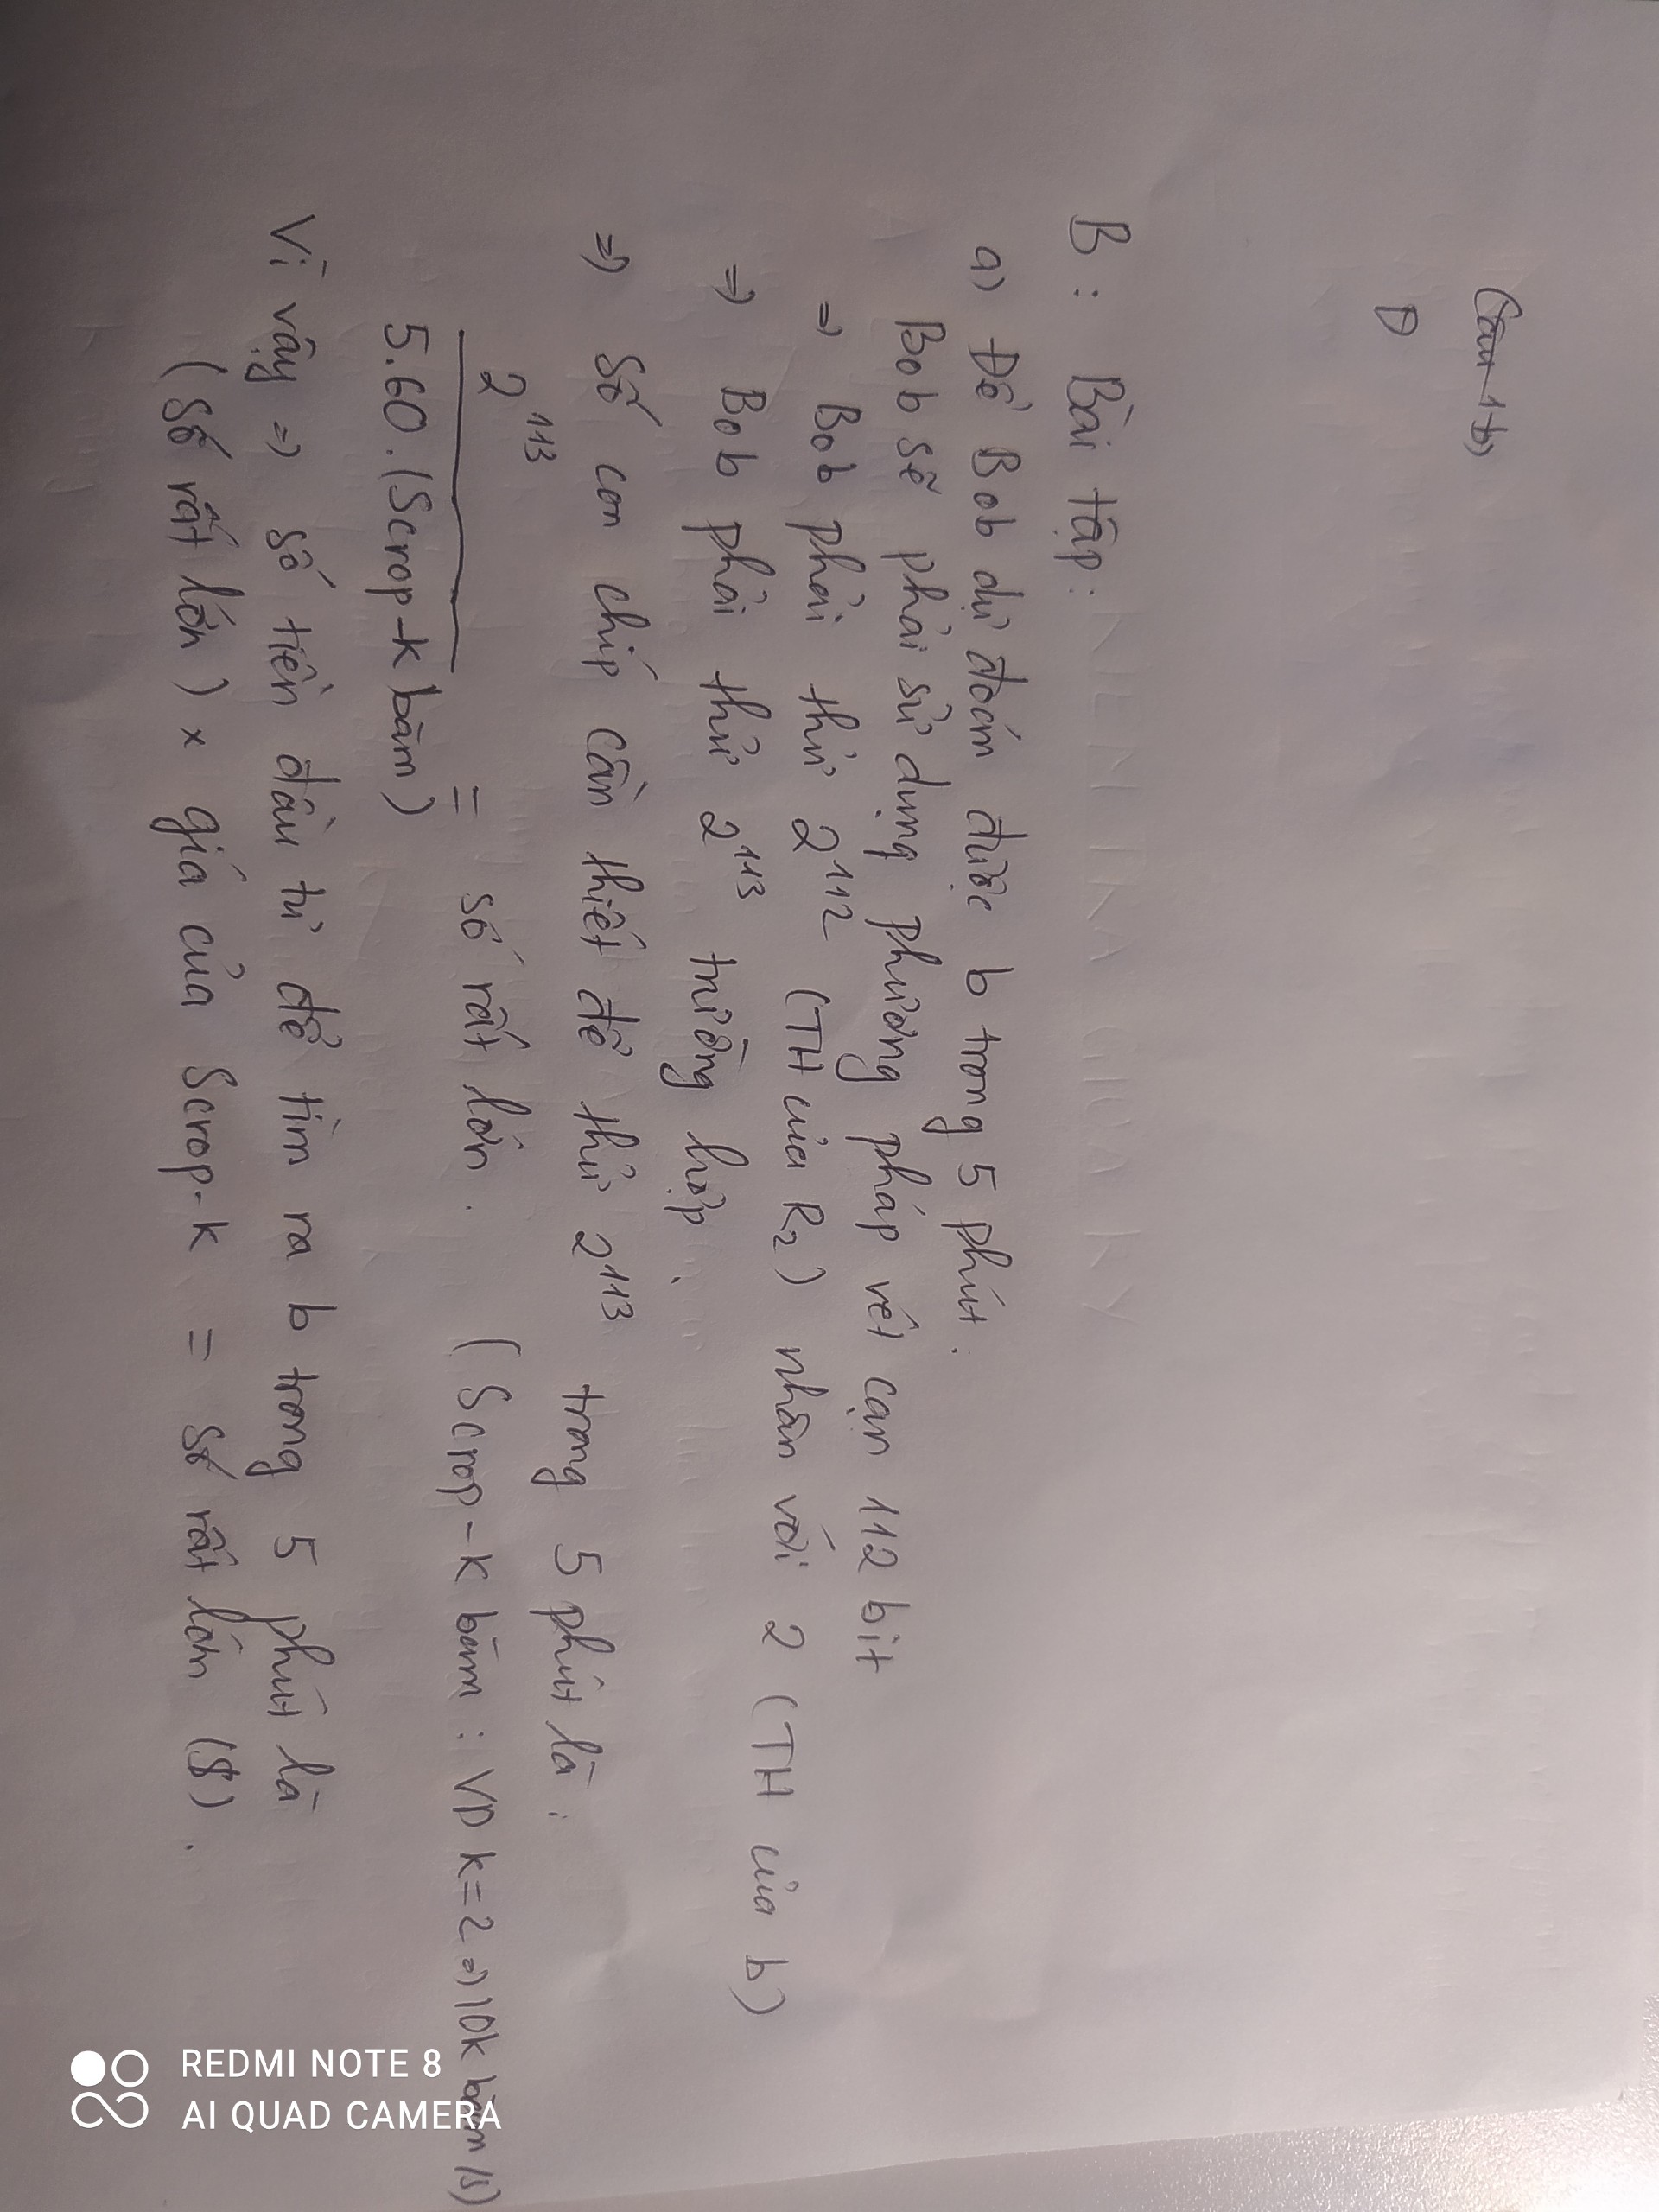 (Câu 1b)
D
B: Bài tập:
a) Để Bob dự đoán được b trong 5 phút:
Bob sẽ phải sử dụng phương pháp vét cạn 112 bit
=> Bob phải thử 2^112 (TH của R2) nhân với 2 (TH của b)
=> Bob phải thử 2^113 trường hợp.
=> Số con chip cần thiết để thử 2^113 trong 5 phút là:
2^113
5.60.(Scrop-k băm) = số rất lớn. (Scrop-k băm: VD k=2 => 10k băm/s)
Vì vậy => số tiền đầu tư để tìm ra b trong 5 phút là
(số rất lớn) x giá của Scrop-k = số rất lớn ($).
REDMI NOTE 8
AI QUAD CAMERA